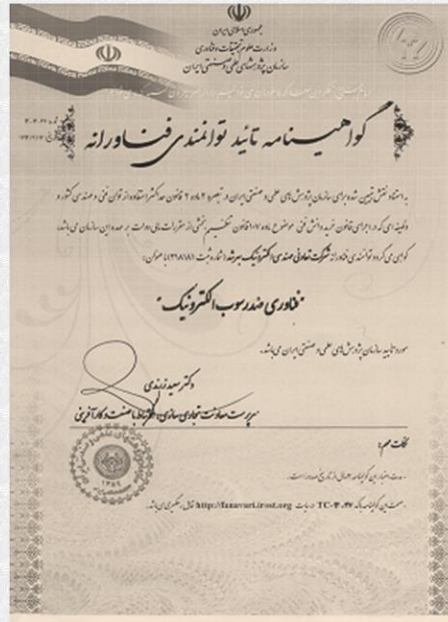 جمهوری اسلامی ایران
وزارت علوم تحقیقات و فناوری
سازمان پژوهشهای علمی و صنعتی ایران
گواهینامه تائید توانمندی فناورانه
به استناد نقش تعیین شده برای سازمان پژوهش های علمی و صنعتی ایران در تبصره ۲ ماده ۶ قانون حداکثر استفاده از توان فنی و مهندسی کشور و
وظیفه ای که در اجرای قانون خرید دانش فنی موضوع ماده ۱۰۷ قانون تنظیم بخشی از مقررات مالی دولت بر عهده این سازمان می باشد،
گواهی می گردد توانمندی فناورانه شرکت تعاونی مهندسی الکترونیک بیرشد (شماره ثبت ۲۱۸۱۸۱) با عنوان:
"فناوری ضد رسوب الکترونیک"
مورد تأیید سازمان پژوهش های علمی و صنعتی ایران می باشد.
دکتر سعید زرندی
سرپرست معاونت تجاری سازی، ارتباط با صنعت و کارآفرینی
نکات مهم:
مدت اعتبار این گواهینامه از تاریخ صدور است.
صحت این گواهینامه با کد TC- در سایت http://fanavari.irost.org قابل رهگیری می باشد.